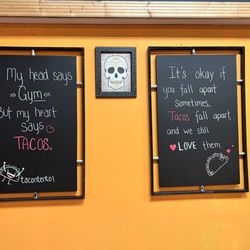 My head says
» Gym «
But my heart
says
TACOS.
tacontento!
It's okay if
you fall apart
sometimes,
Tacos fall apart
and we still
LOVE them